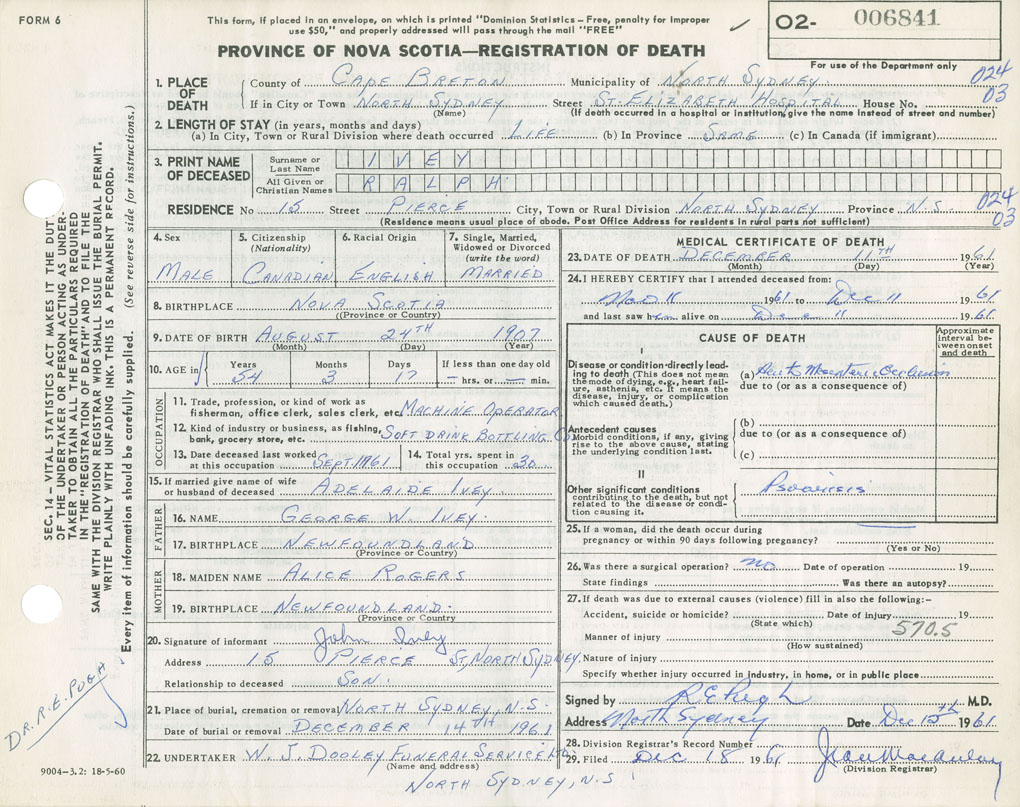 FORM 6
This form, if placed in an envelope, on which is printed "Dominion Statistics – Free, penalty for improper
use $50," and properly addressed will pass through the mail "FREE"
O2- 006841
For use of the Department only
PROVINCE OF NOVA SCOTIA—REGISTRATION OF DEATH
024
03
1. PLACE OF DEATH
County of CAPE BRETON Municipality of NORTH SYDNEY.
If in City or Town NORTH SYDNEY Street ST. ELIZABETH HOSPITAL House No.
(Name) (If death occurred in a hospital or institution, give the name instead of street and number)
2. LENGTH OF STAY (in years, months and days)
(a) In City, Town or Rural Division where death occurred LIFE (b) In Province SAME (c) In Canada (if immigrant)
3. PRINT NAME OF DECEASED
Surname or Last Name IVEY
All Given or Christian Names RALPH.
RESIDENCE No 15 Street PIERCE City, Town or Rural Division NORTH SYDNEY Province N.S
(Residence means usual place of abode. Post Office Address for residents in rural parts not sufficient)
024
03
4. Sex
MALE
5. Citizenship
(Nationality)
CANADIAN
6. Racial Origin
ENGLISH
7. Single, Married,
Widowed or Divorced
(write the word)
MARRIED
8. BIRTHPLACE NOVA SCOTIA
(Province or Country)
9. DATE OF BIRTH AUGUST 24TH 1907
(Month) (Day) (Year)
10. AGE in
Years Months Days If less than one day old
54 3 17 — hrs. or — min.
OCCUPATION
11. Trade, profession, or kind of work as
fisherman, office clerk, sales clerk, etc. MACHINE OPERATOR
12. Kind of industry or business, as fishing,
bank, grocery store, etc. SOFT DRINK BOTTLING Co
13. Date deceased last worked
at this occupation SEPT. 1961
14. Total yrs. spent in
this occupation 30
15. If married give name of wife
or husband of deceased ADELAIDE IVEY
FATHER
16. NAME GEORGE W. IVEY.
17. BIRTHPLACE NEWFOUNDLAND
(Province or Country)
MOTHER
18. MAIDEN NAME ALICE ROGERS
19. BIRTHPLACE NEWFOUNDLAND.
(Province or Country)
20. Signature of informant John Ivey
Address 15 PIERCE ST, NORTH SYDNEY.
Relationship to deceased SON.
21. Place of burial, cremation or removal NORTH SYDNEY, N.S.
Date of burial or removal DECEMBER 14TH 1961
22. UNDERTAKER W. J. DOOLEY FUNERAL SERVICE Ltd.
(Name and address)
NORTH SYDNEY, N.S
MEDICAL CERTIFICATE OF DEATH
23. DATE OF DEATH DECEMBER 11TH 1961
(Month) (Day) (Year)
24. I HEREBY CERTIFY that I attended deceased from:
11 1961 to Dec 11 1961
and last saw him alive on Dec 11 1961
CAUSE OF DEATH
Approximate
interval be-
tween onset
and death
I
Disease or condition directly lead-
ing to death (This does not mean
the mode of dying, e.g., heart fail-
ure, asthenia, etc. It means the
disease, injury, or complication
which caused death.)
(a)
due to (or as a consequence of)
Antecedent causes
Morbid conditions, if any, giving
rise to the above cause, stating
the underlying condition last.
(b)
due to (or as a consequence of)
(c)
II
Other significant conditions
contributing to the death, but not
related to the disease or condi-
tion causing it.
25. If a woman, did the death occur during
pregnancy or within 90 days following pregnancy?
(Yes or No)
26. Was there a surgical operation? no Date of operation 19
State findings Was there an autopsy?
27. If death was due to external causes (violence) fill in also the following:-
Accident, suicide or homicide? Date of injury 19
(State which)
570.5
Manner of injury
(How sustained)
Nature of injury
Specify whether injury occurred in Industry, in home, or in public place
Signed by R E Pugh M.D.
Address North Sydney Date Dec 15th 1961
28. Division Registrar's Record Number
29. Filed Dec 18 1961
(Division Registrar)
SEC. 14 – VITAL STATISTICS ACT MAKES IT THE DUTY
OF THE UNDERTAKER OR PERSON ACTING AS UNDER-
TAKER TO OBTAIN ALL THE PARTICULARS REQUIRED
IN THE "REGISTRATION OF DEATH" AND TO FILE THE
SAME WITH THE DIVISION REGISTRAR WHO SHALL ISSUE THE BURIAL PERMIT.
WRITE PLAINLY WITH UNFADING INK. THIS IS A PERMANENT RECORD.
Every item of information should be carefully supplied. (See reverse side for instructions.)
DR. R. E. PUGH
9004-3.2: 18-5-60